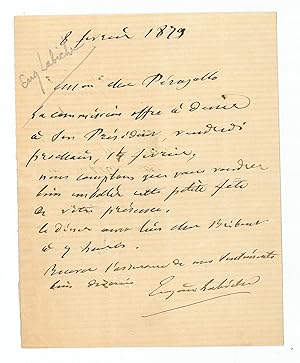 8 février 1879
Eug Labiche
Mon cher Péragallo
La commission offre à diner
à son Président, vendredi
prochain, 14 février.
nous comptons que vous voudrez
bien embellir cette petite fête
de votre présence.
le diner aura lieu chez Brébant
à 7 heures.
Recevez l'assurance de mes sentiments
bien dévoués
Eugène Labiche